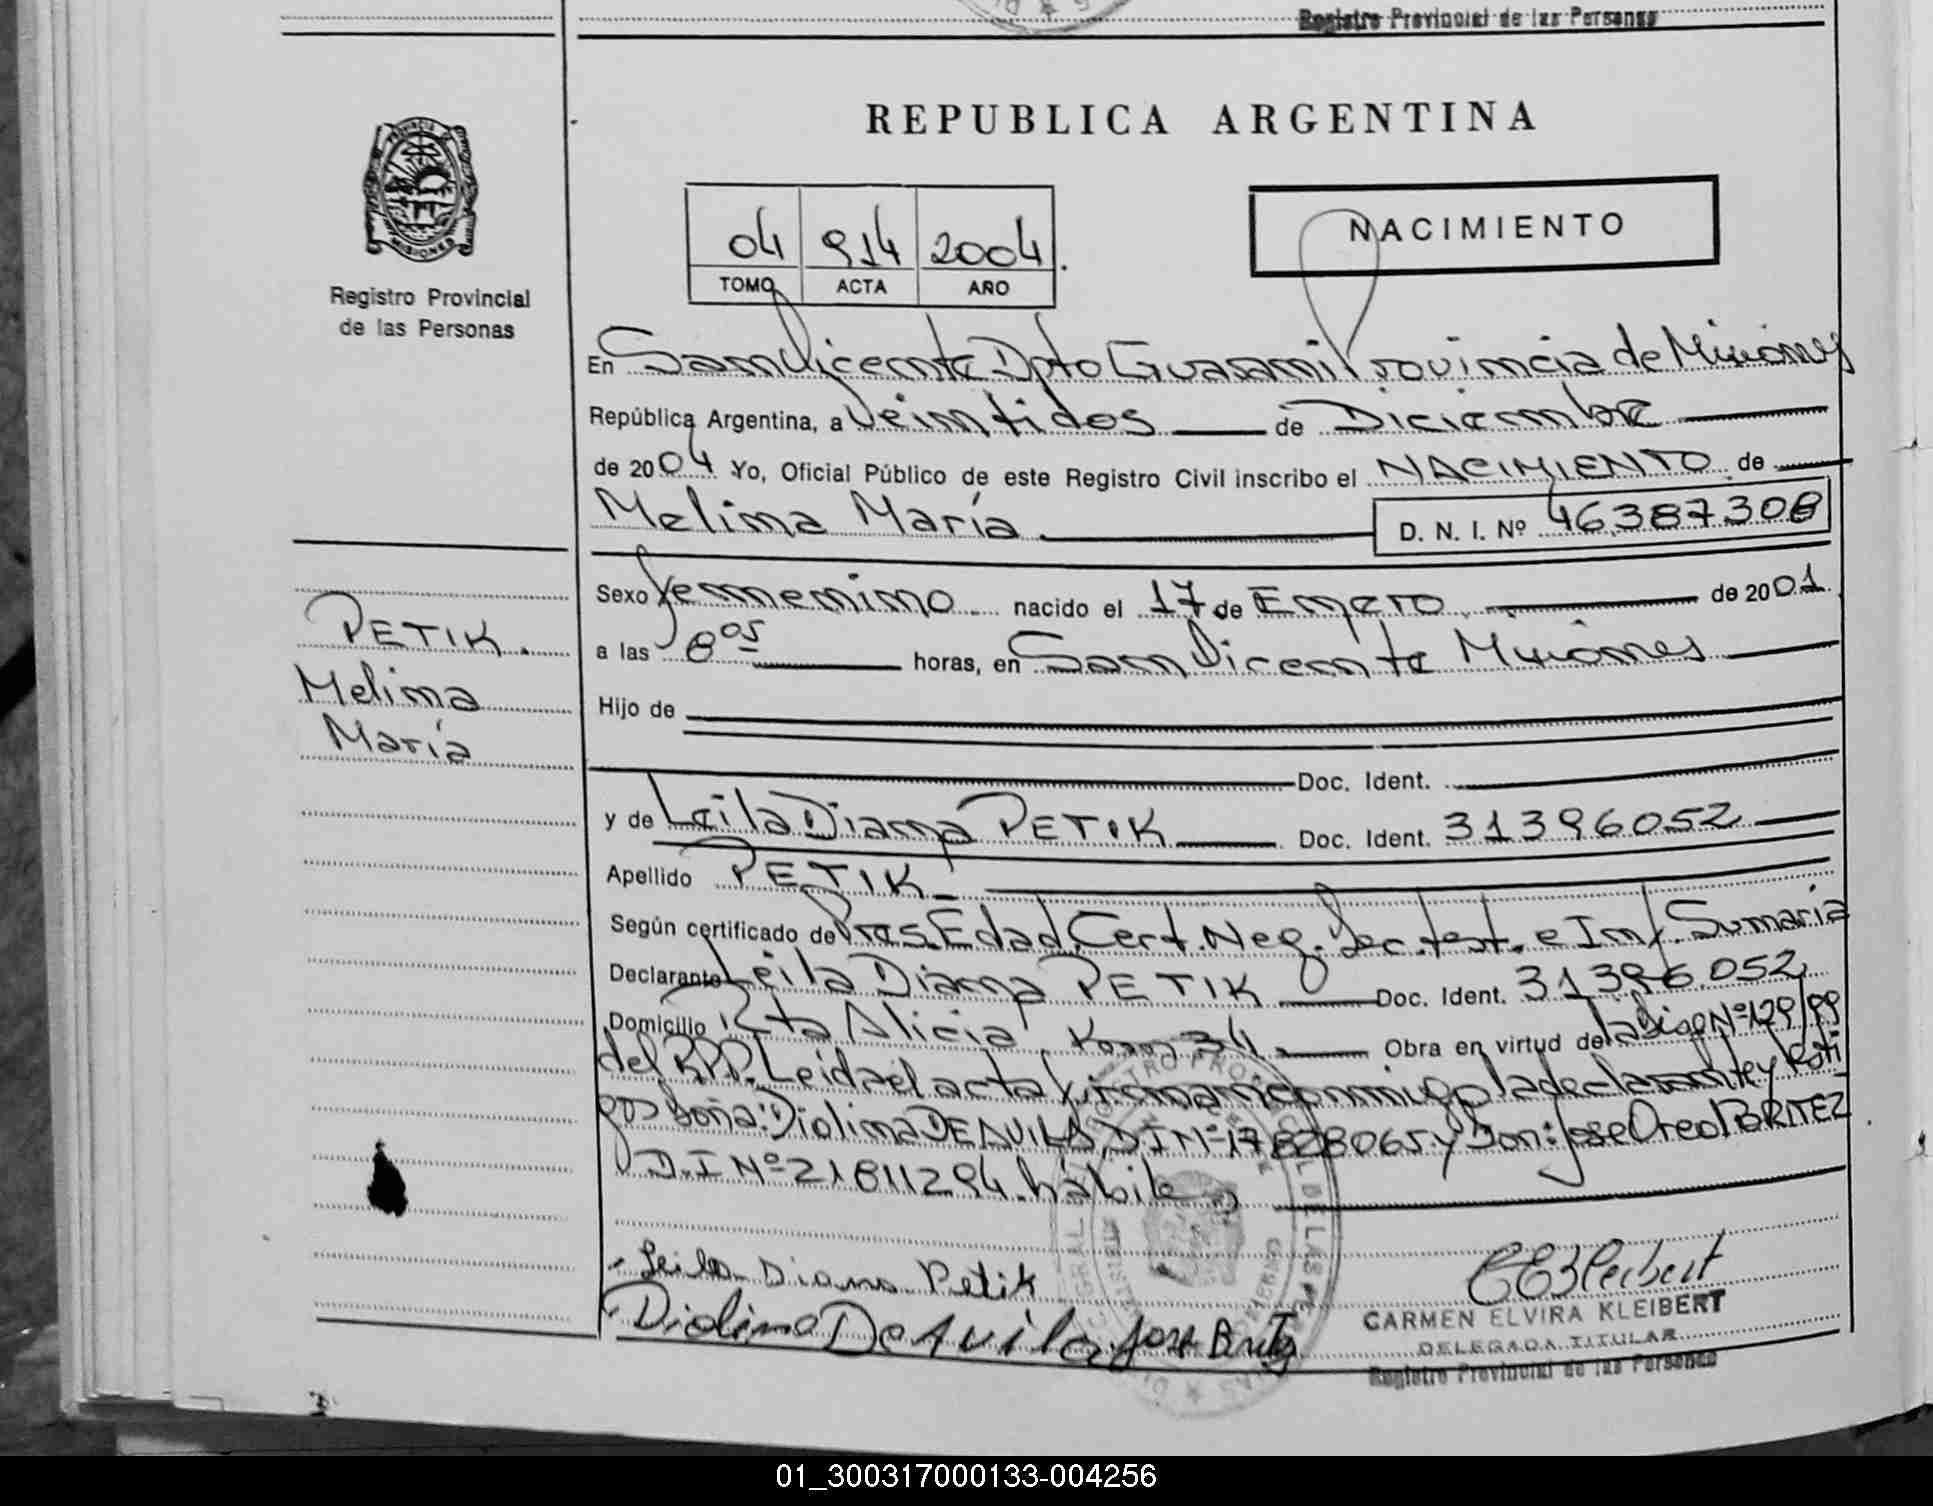 Registro Provincial de las Personas
REPUBLICA ARGENTINA
PROVINCIA
MISIONES
Registro Provincial
de las Personas
04 914 2004.
TOMO ACTA AÑO
NACIMIENTO
En San Vicente Dpto Guaraní Provincia de Misiones
República Argentina, a Veintidos de Diciembre
de 2004 Yo, Oficial Público de este Registro Civil inscribo el NACIMIENTO de
Melina María D. N. I. Nº 46.387.308
PETIK.
Melina
María
Sexo femenino nacido el 17 de Enero de 2001
a las 8 05 horas, en San Vicente Misiones
Hijo de
Doc. Ident.
y de Leila Diana PETIK Doc. Ident. 31396052
Apellido PETIK
Según certificado de Pres. Edad, Cert. Neg. Dec. test. e Inf. Sumaria
Declarante Leila Diana PETIK Doc. Ident. 31396.052
Domicilio Rta Alicia Obra en virtud de la Disp Nº 129/99
del RPP. Leida el acta firman conmigo la declarante y testi
gos Doña: Diolina DE AVILA, DI Nº 17828065 y Don: Jose Oreol BRITEZ
D.I Nº 21811294. hábiles
Leila Diana Petik
Diolina De Avila Jose Britez
CARMEN ELVIRA KLEIBERT
DELEGADA TITULAR
Registro Provincial de las Personas
01_300317000133-004256